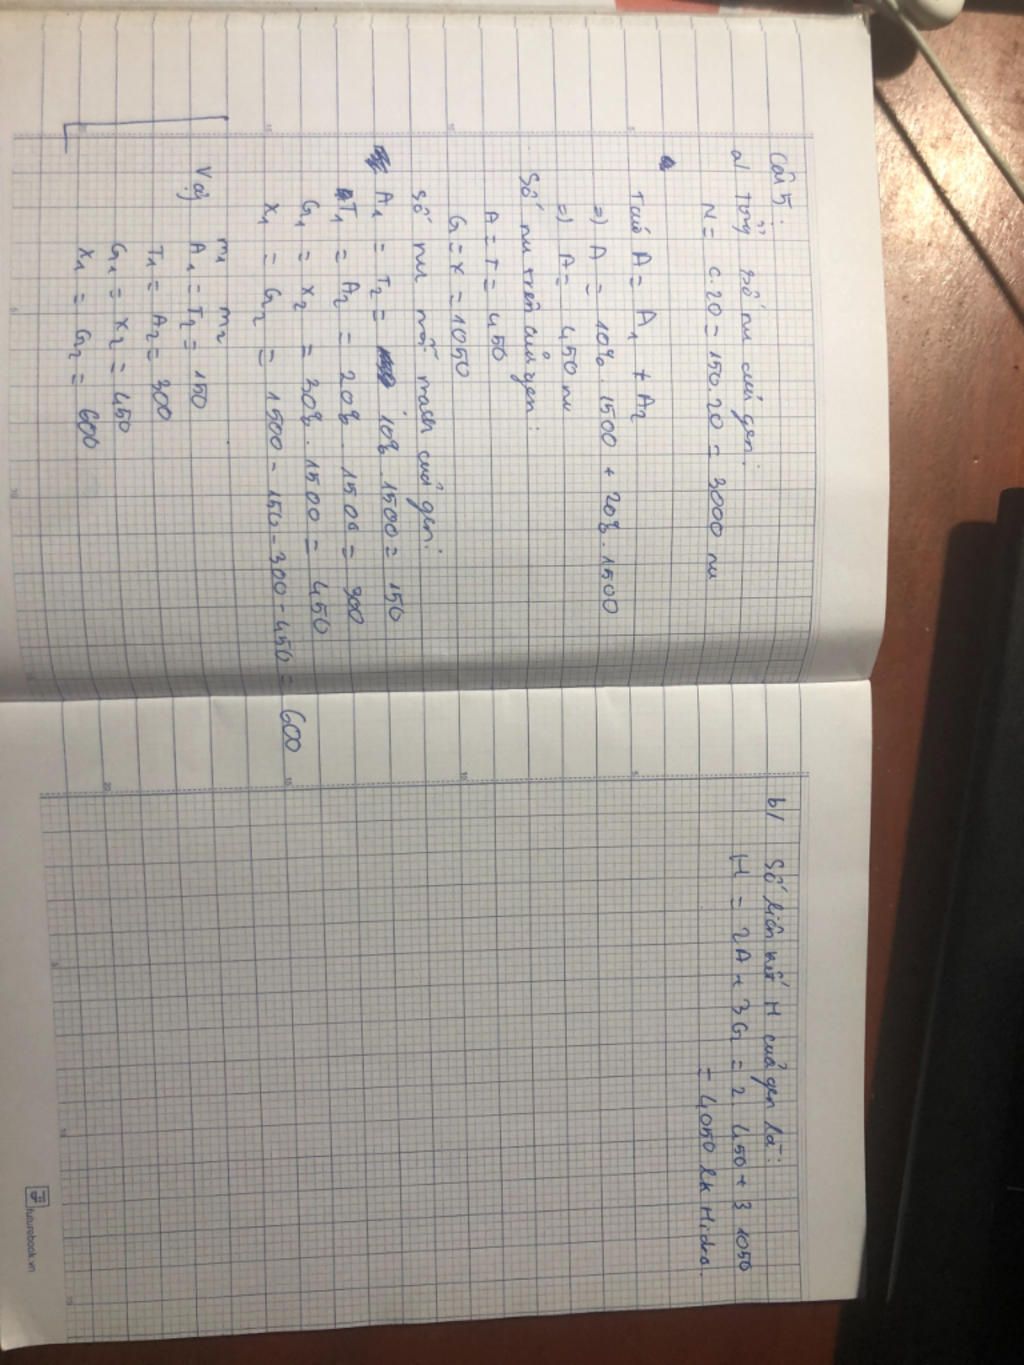 Câu 5:
a/ Tổng số nu của gen:
N = C.20 = 150.20 = 3000 nu
Ta có A = A1 + A2
=) A = 10%. 1500 + 20%. 1500
=) A = 450 nu
Số nu trên của gen:
A = T = 450
G = X = 1050
Số nu mỗi mạch của gen:
A1 = T2 = 10%. 1500 = 150
T1 = A2 = 20%. 1500 = 300
G1 = X2 = 30%. 1500 = 450
X1 = G2 = 1500 - 150 - 300 - 450 = 600
Vậy m1 m2
A1 = T2 = 150
T1 = A2 = 300
G1 = X2 = 450
X1 = G2 = 600
b/ Số liên kết H của gen là:
H = 2A + 3G = 2. 450 + 3. 1050
= 4050 lk Hidro.
futurebook.vn
5
10
15
20
5
10
15
20
5
10
15
5
10
15